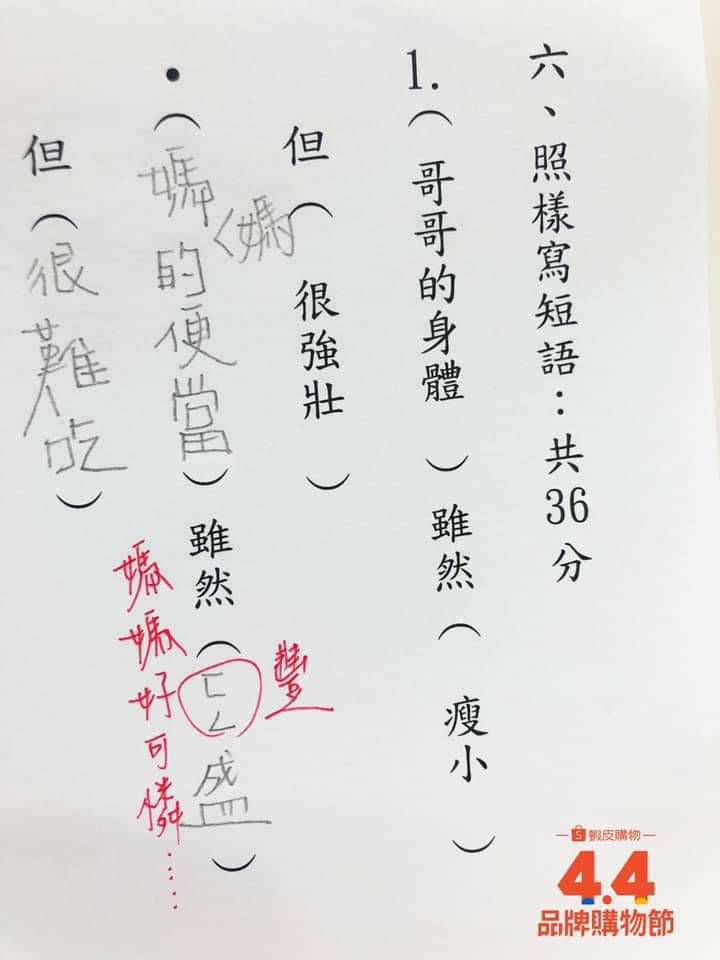 六、照樣寫短語：共36分
1.（哥哥的身體）雖然（瘦小）
但（很強壯）
•（媽媽的便當）雖然（ㄈㄥ盛）
豐
但（很難吃）
媽媽好可憐……
蝦皮購物
4.4
品牌購物節